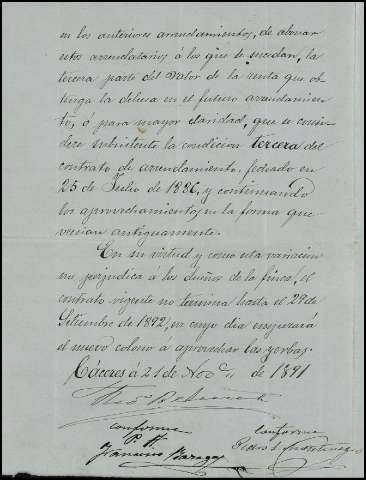 en los anteriores arrendamientos, de abonar
estos arrendatarios á los que le sucedan, la
tercera parte del valor de la renta que ob
tenga la dehesa en el futuro arrendamien
to, ó para mayor claridad, que se consi
dere subsistente la condicion tercera del
contrato de arrendamiento, fechado en
25 de Julio de 1886, y continuando
los aprovechamientos en la forma que
venian antiguamente.
En su virtud y como esta variacion
no perjudica á los dueños de la finca, el
contrato vigente no termina hasta el 29 de
Setiembre de 1892, en cuyo dia empezará
el nuevo colono á aprovechar las yerbas.
Cáceres á 21 de Nov.e de 1891
conforme
conforme
P. A.
Pedro
Francisco